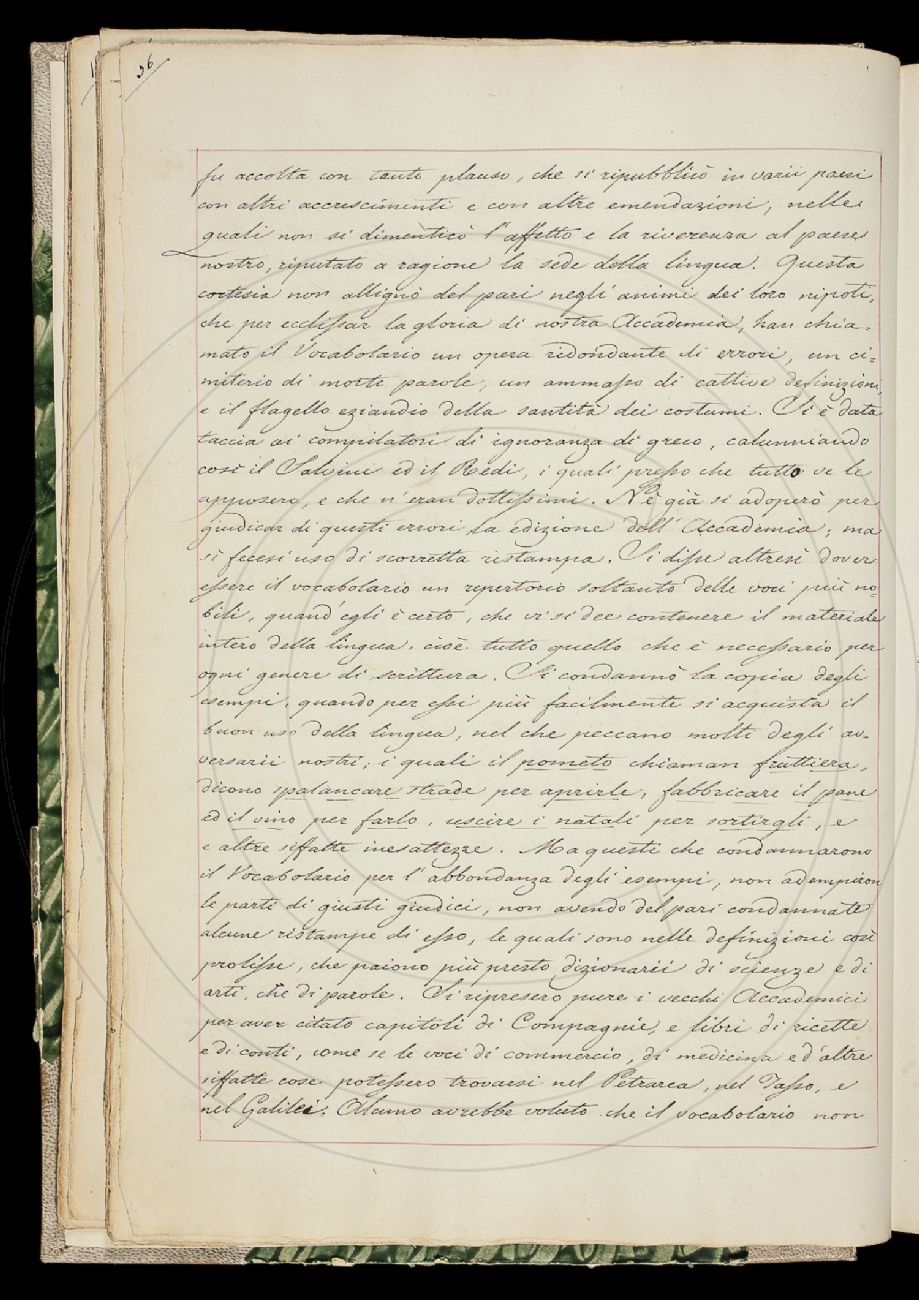 36
fu accolta con tanto plauso, che si ripubblicò in varii paesi
con altri accrescimenti e con altre emendazioni, nelle
quali non si dimenticò l'affetto e la riverenza al paese
nostro, riputato a ragione la sede della lingua. Questa
cortesia non allignò del pari negli animi dei loro nipoti,
che per ecclissar la gloria di nostra Accademia, han chia=
mato il Vocabolario un opera ridondante di errori, un ci=
miterio di morte parole, un ammasso di cattive definizioni,
e il flagello eziandio della santità dei costumi. Si è data
taccia ai compilatori di ignoranza di greco, calunniando
così il Salvini ed il Redi, i quali presso che tutto ve le
apposero, e che n'eran dottissimi. Nè già si adoperò per
giudicar di questi errori la edizione dell'Accademia; ma
si fecesi uso di scorretta ristampa. Si disse altresì dover
essere il vocabolario un repertorio soltanto delle voci più no=
bili, quand'egli è certo, che vi si dee contenere il materiale
intero della lingua, cioè tutto quello che è necessario per
ogni genere di scrittura. Si condannò la copia degli
esempi, quando per essi più facilmente si acquista il
buon uso della lingua, nel che peccano molti degli av=
versarii nostri, i quali il pometo chiaman fruttiera,
dicono spalancare strade per aprirle, fabbricare il pane
ed il vino per farlo, uscire i natali per sortirgli, e
e altre siffatte inesattezze. Ma questi che condannarono
il Vocabolario per l'abbondanza degli esempi, non adempiron
le parti di giusti giudici, non avendo del pari condannate
alcune ristampe di esso, le quali sono nelle definizioni così
prolisse, che paiono più presto dizionarii di scienze e di
arti, che di parole. Si ripresero pure i vecchi Accademici
per aver citato capitoli di Compagnie, e libri di ricette
e di conti, come se le voci di commercio, di medicina e d'altre
siffatte cose potessero trovarsi nel Petrarca, nel Tasso, e
nel Galilei. Alcuno avrebbe voluto che il vocabolario non